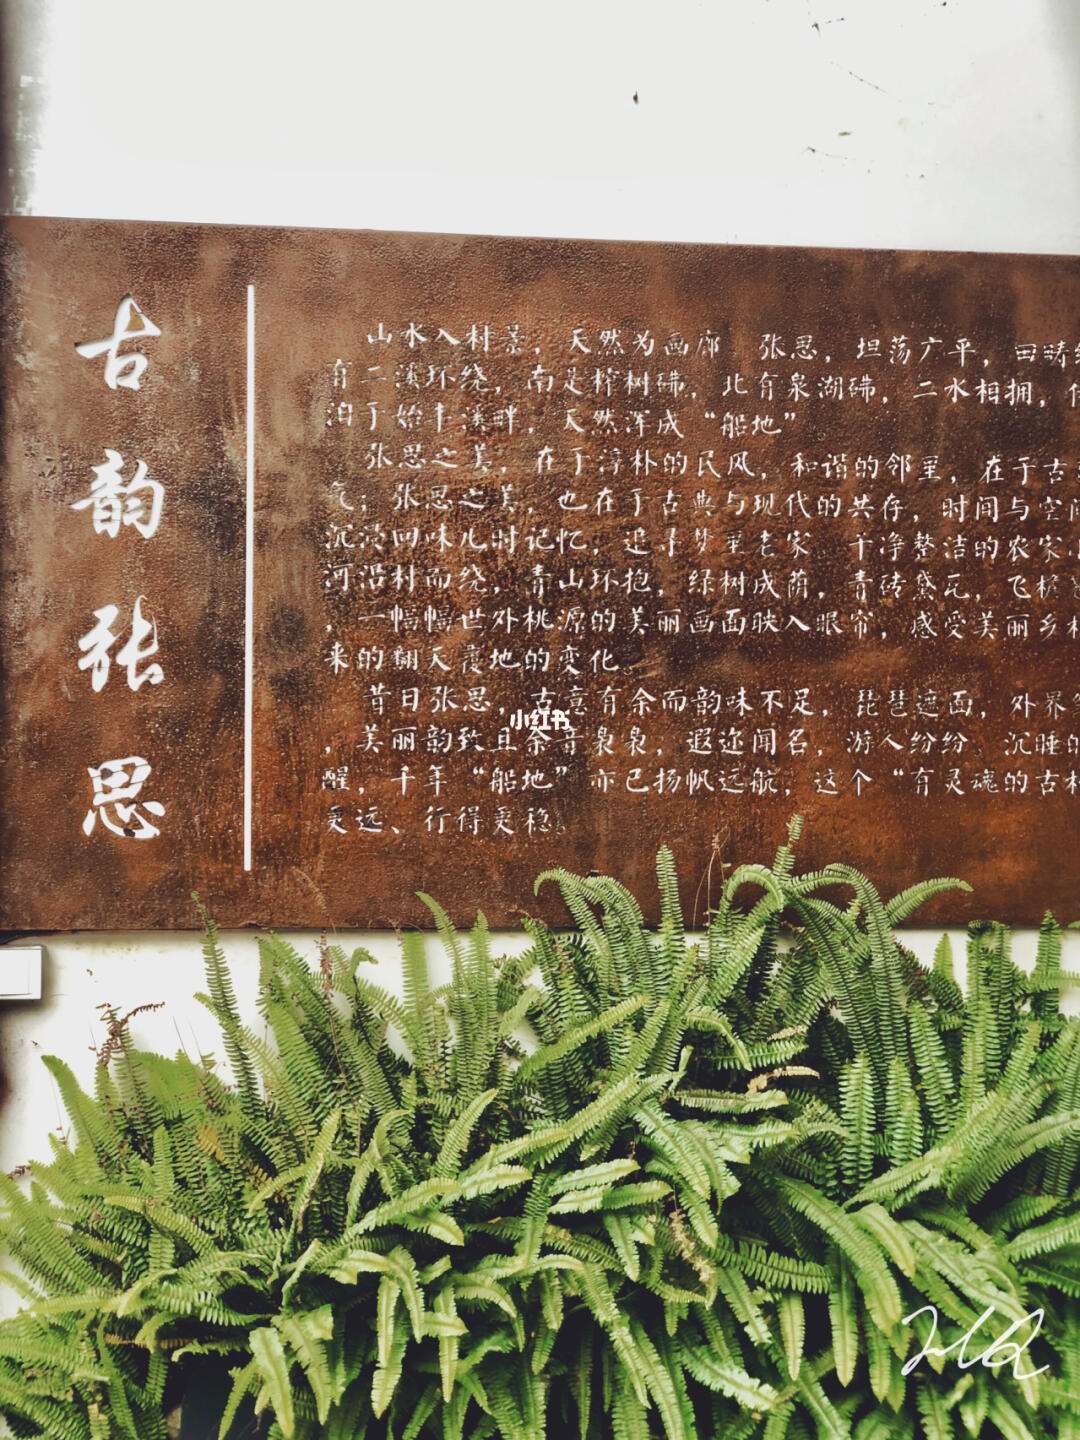 古韵张思
山水入村景，天然为画廊 张思，坦荡广平，田畴
有二溪环绕，南是榨树砩，北有泉湖砩，二水相拥，
泊于始丰溪畔，天然浑成“船地”
张思之美，在于淳朴的民风，和谐的邻里，在于古
气；张思之美，也在于古典与现代的共存，时间与空间
沉淀回味儿时记忆，追寻梦里老家 干净整洁的农家
河沿村而绕，青山环抱，绿树成荫，青砖黛瓦，飞檐
，一幅幅世外桃源的美丽画面映入眼帘，感受美丽乡村
来的翻天覆地的变化。
昔日张思，古意有余而韵味不足，琵琶遮面，外界
，美丽韵致且余音袅袅，遐迩闻名，游人纷纷 沉睡的
醒，千年“船地”亦已扬帆远航，这个“有灵魂的古村
更远、行得更稳。
小红书